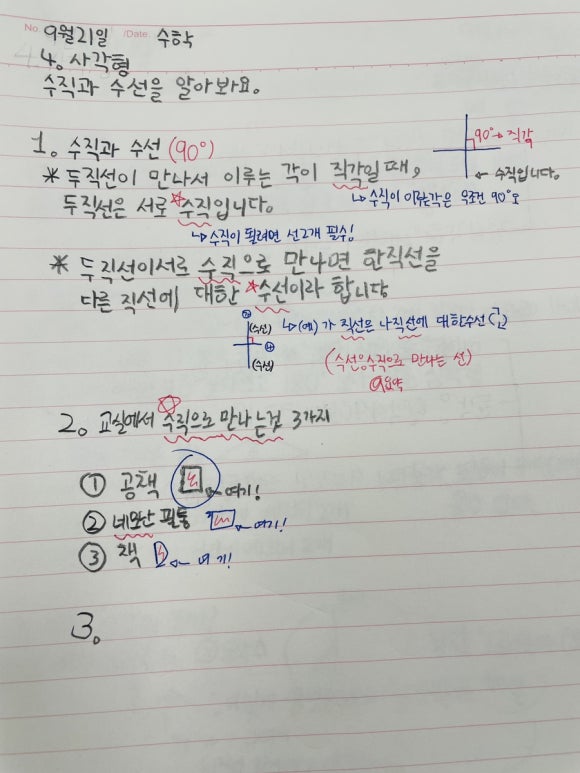 No. 9월21일 /Date. 수학
4. 사각형
수직과 수선을 알아봐요.
1. 수직과 수선 (90°)
90° → 직각
※ 두직선이 만나서 이루는 각이 직각일 때,
← 수직입니다.
두직선은 서로 수직입니다.
↳ 수직이 이루는각은 무조건 90°
↳ 수직이 될려면 선2개 필수!
※ 두직선이서로 수직으로 만나면 한직선을
다른 직선에 대한 수선이라 합니다
(수선) ㉯ ↳ (예) 가 직선은 나직선에 대한수선
(수선)
(수선은수직으로 만나는 선)
요약
2. 교실에서 수직으로 만나는것 3가지
① 공책 ← 여기!
② 네모난 필통 ← 여기!
③ 책 ← 여기!
3.